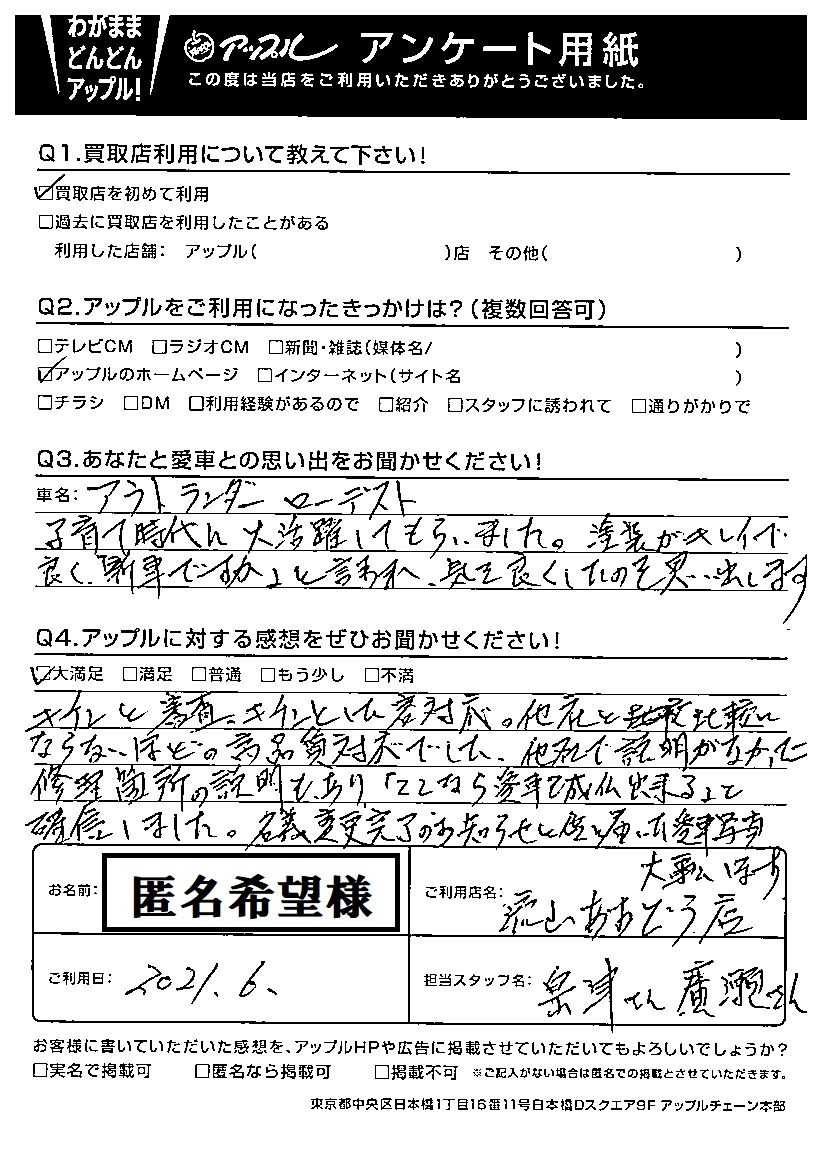 わがまま
どんどん
アップル!
アップル アンケート用紙
この度は当店をご利用いただきありがとうございました。
Q1.買取店利用について教えて下さい!
☑買取店を初めて利用
□過去に買取店を利用したことがある
利用した店舗: アップル( )店 その他( )
Q2.アップルをご利用になったきっかけは?(複数回答可)
□テレビCM □ラジオCM □新聞・雑誌(媒体名/ )
☑アップルのホームページ □インターネット(サイト名 )
□チラシ □DM □利用経験があるので □紹介 □スタッフに誘われて □通りがかりで
Q3.あなたと愛車との思い出をお聞かせください!
車名: アウトランダー ローデスト
子育て時代に大活躍してもらいました。塗装がキレイで
良く「新車ですか」と言われ、気を良くしたのを思い出します
Q4.アップルに対する感想をぜひお聞かせください!
☑大満足 □満足 □普通 □もう少し □不満
キチンと審査、キチンとした応対。他社と比較に
ならないほどの高品質対応でした。他社で説明がなかった
修理箇所の説明もあり「ここなら愛車も成仏出来る」と
確信しました。名義変更完了のお知らせと届いた愛車写真
大事にします
お名前: 匿名希望様
ご利用店名: 流山おおどう店
ご利用日: 2021.6.
担当スタッフ名: 泉澤さん 廣瀬さん
お客様に書いていただいた感想を、アップルHPや広告に掲載させていただいてもよろしいでしょうか?
□実名で掲載可 □匿名なら掲載可 □掲載不可 ※ご記入がない場合は匿名での掲載とさせていただきます。
東京都中央区日本橋1丁目16番11号日本橋Dスクエア9F アップルチェーン本部